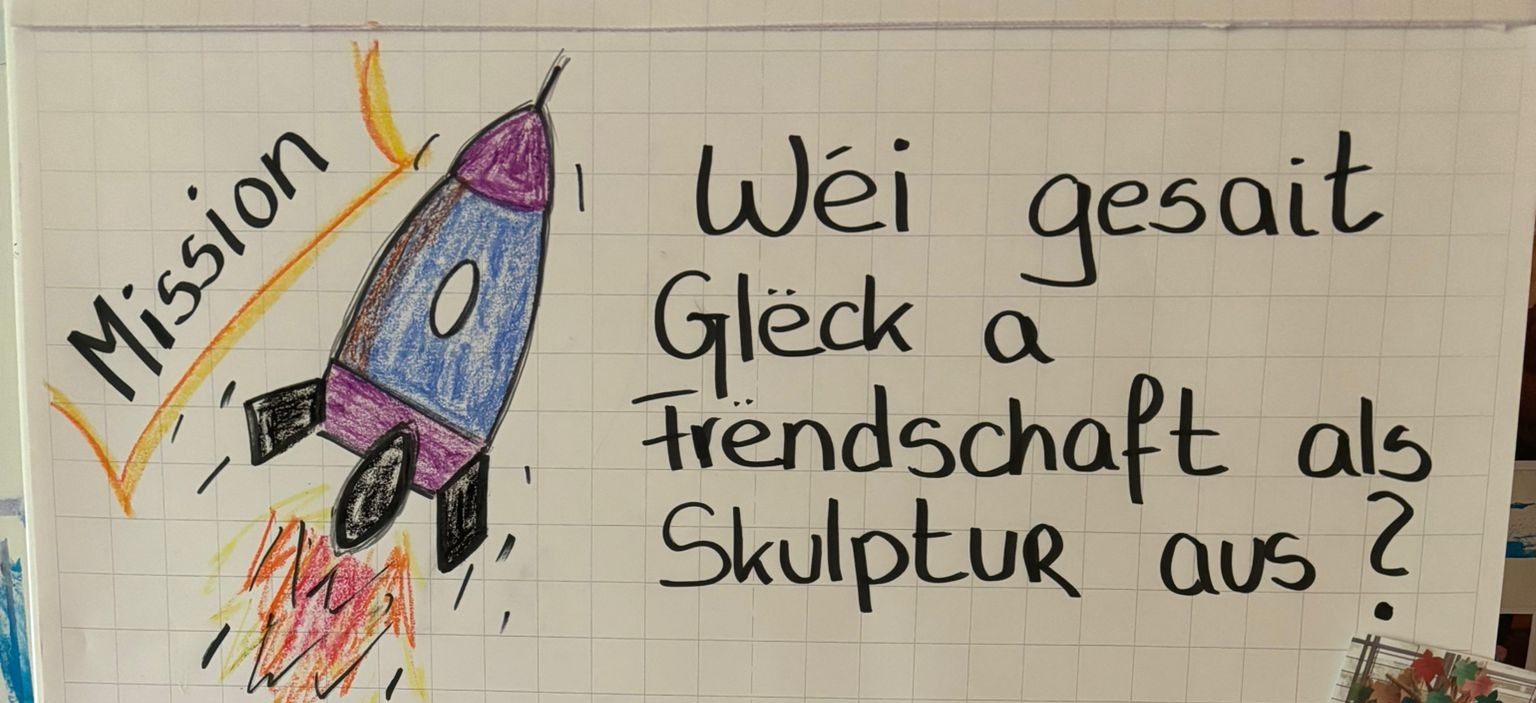 Mission
Wéi gesait
Glëck a
Frëndschaft als
Skulptur aus?